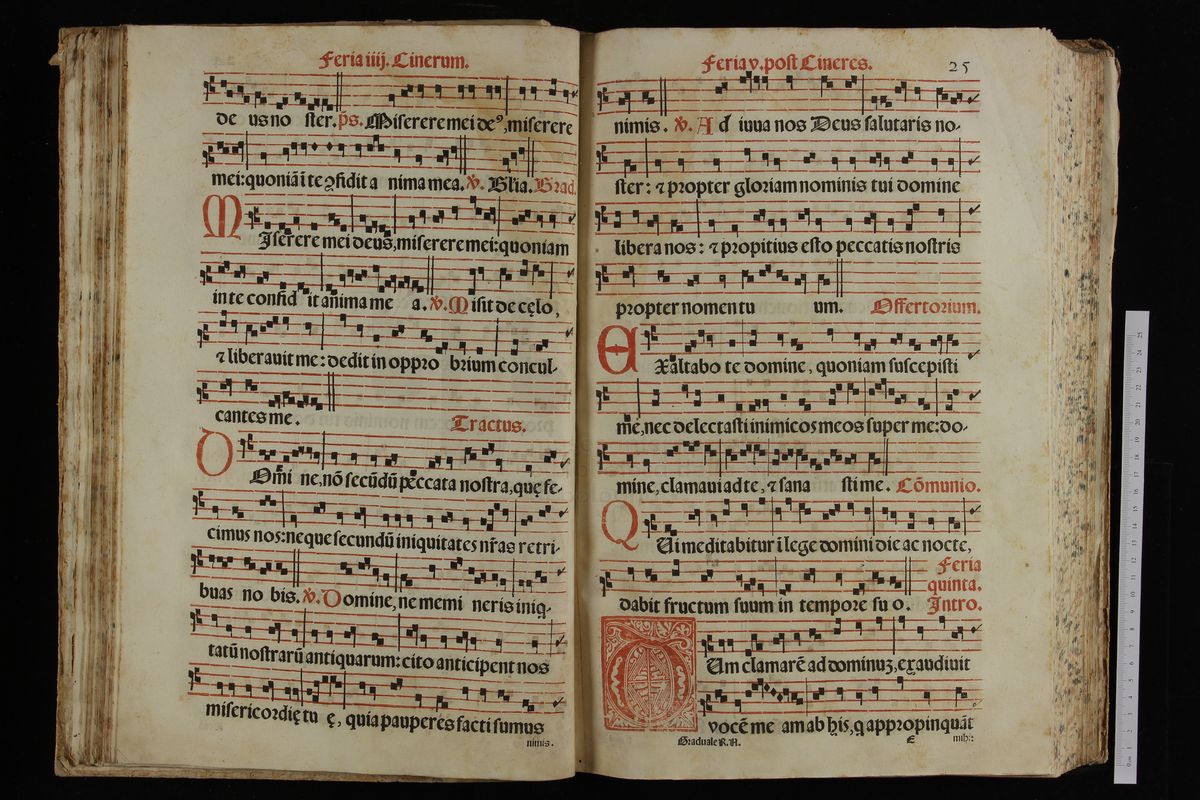 Feria iiij. Cinerum.
de us no ster. ps. Miserere mei deꝰ, miserere
mei: quoniā i te ꝯfidit a nima mea. ℣. Gl'ia. Grad.
MIserere mei deus, miserere mei: quoniam
in te confid it anima me a. ℣. Misit de cęlo,
⁊ liberauit me: dedit in oppro brium concul-
cantes me. Tractus.
DOmi ne, nō secūdū peccata nostra, quę fe-
cimus nos: neque secundū iniquitates nr̄as retri-
buas no bis. ℣. Domine, ne memi neris iniq-
tatū nostrarū antiquarum: cito anticipent nos
misericordię tu ę, quia pauperes facti sumus
nimis.
Feria v. post Cineres. 25
nimis. ℣. Ad iuua nos Deus salutaris no-
ster: ⁊ propter gloriam nominis tui domine
libera nos: ⁊ propitius esto peccatis nostris
propter nomen tu um. Offertorium.
EXaltabo te domine, quoniam suscepisti
me, nec delectasti inimicos meos super me: do-
mine, clamaui ad te, ⁊ sana sti me. Cōmunio.
QUi meditabitur ī lege domini die ac nocte,
dabit fructum suum in tempore su o.
Feria
quinta.
Intro.
DUm clamarē ad dominuꝫ, exaudiuit
vocē me am ab his, q appropinquāt
Graduale R. A. E mihi: